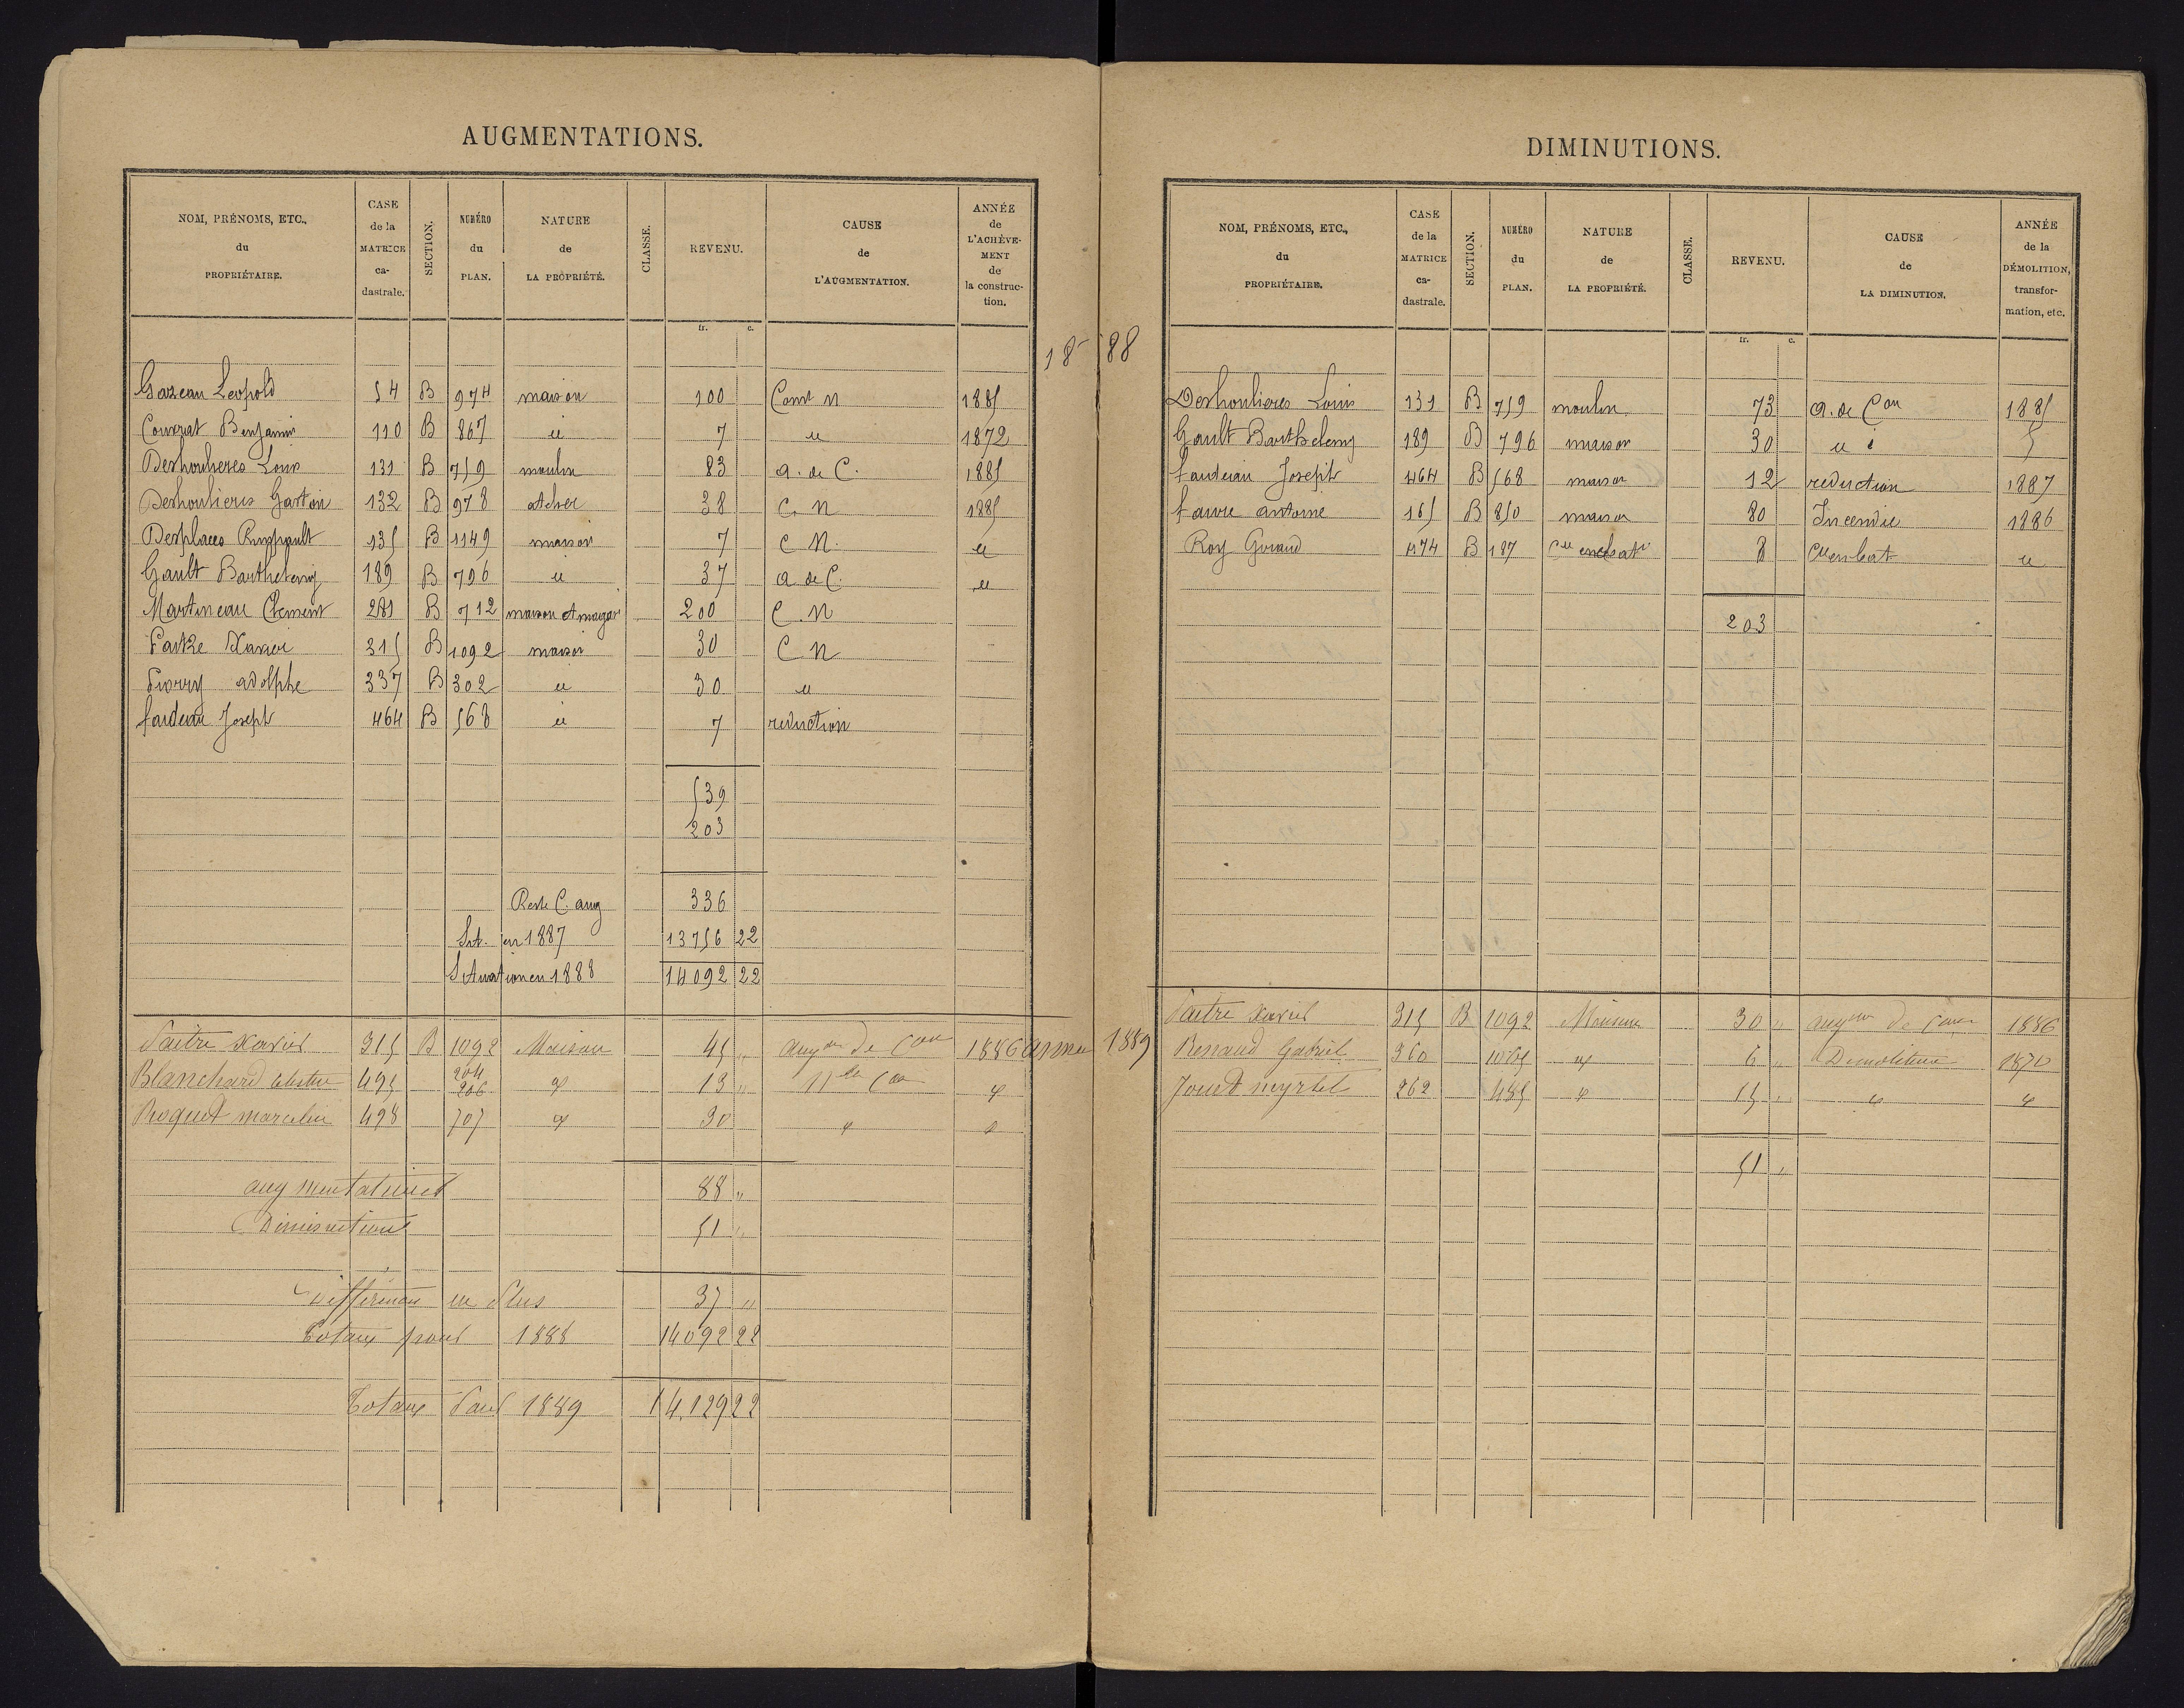 AUGMENTATIONS.
NOM, PRÉNOMS, ETC., du PROPRIÉTAIRE. CASE de la MATRICE ca-dastrale. SECTION. NUMÉRO du PLAN. NATURE de LA PROPRIÉTÉ. CLASSE. REVENU. CAUSE de L'AUGMENTATION. ANNÉE de L'ACHÈVE-MENT de la construc-tion.
fr. c.
1888
Gazeau Leopold 54 B 974 maison 100 Const n 1885
Benjamin 110 B 867 " 7 " 1872
Deshoulieres Louis 131 B 759 moulin 83 a. de C. 1885
Deshoulieres Gaston 132 B 978 atelier 38 C. N 1885
Desplaces 135 B 1149 maison 7 C N. "
Gault Barthelemy 189 B 796 " 37 a de C. "
Martineau Clement 281 B 712 maison et magas 200 C. N
315 B 1092 maison 30 C N
adolphe 337 B 302 " 30 "
Joseph 464 B 568 " 7 reduction
539
203
Reste C. aug 336
Sit. en 1887 13756 22
Situation en 1888 14092 22
Xavier 315 B 1092 Maison 45 " augon de Con 1886
Blanchard 495 204 206 " 13 " Nlle Con "
marcelin 498 707 " 30 " "
augmentations 88 "
Diminutions 51 "
Différence en Plus 37 "
Totaux pour 1888 14092 22
Totaux Pour 1889 14.129 22
année 1889
DIMINUTIONS.
NOM, PRÉNOMS, ETC., du PROPRIÉTAIRE. CASE de la MATRICE ca-dastrale. SECTION. NUMÉRO du PLAN. NATURE de LA PROPRIÉTÉ. CLASSE. REVENU. CAUSE de LA DIMINUTION. ANNÉE de la DÉMOLITION, transfor-mation, etc.
fr. c.
Deshoulieres Louis 131 B 759 moulin 73 a. de Con 1885
Gault Barthelemy 189 B 796 maison 30 " "
Joseph 464 B 568 maison 12 reduction 1887
Faivre antoine 165 B 850 maison 80 Incendie 1886
Roy 474 B 187 8 "
203
Xavier 315 B 1092 Maison 30 " augon de Con 1886
Renaud Gabriel 360 1065 " 6 " Demolition 1870
262 485 " 15 " " "
51 "